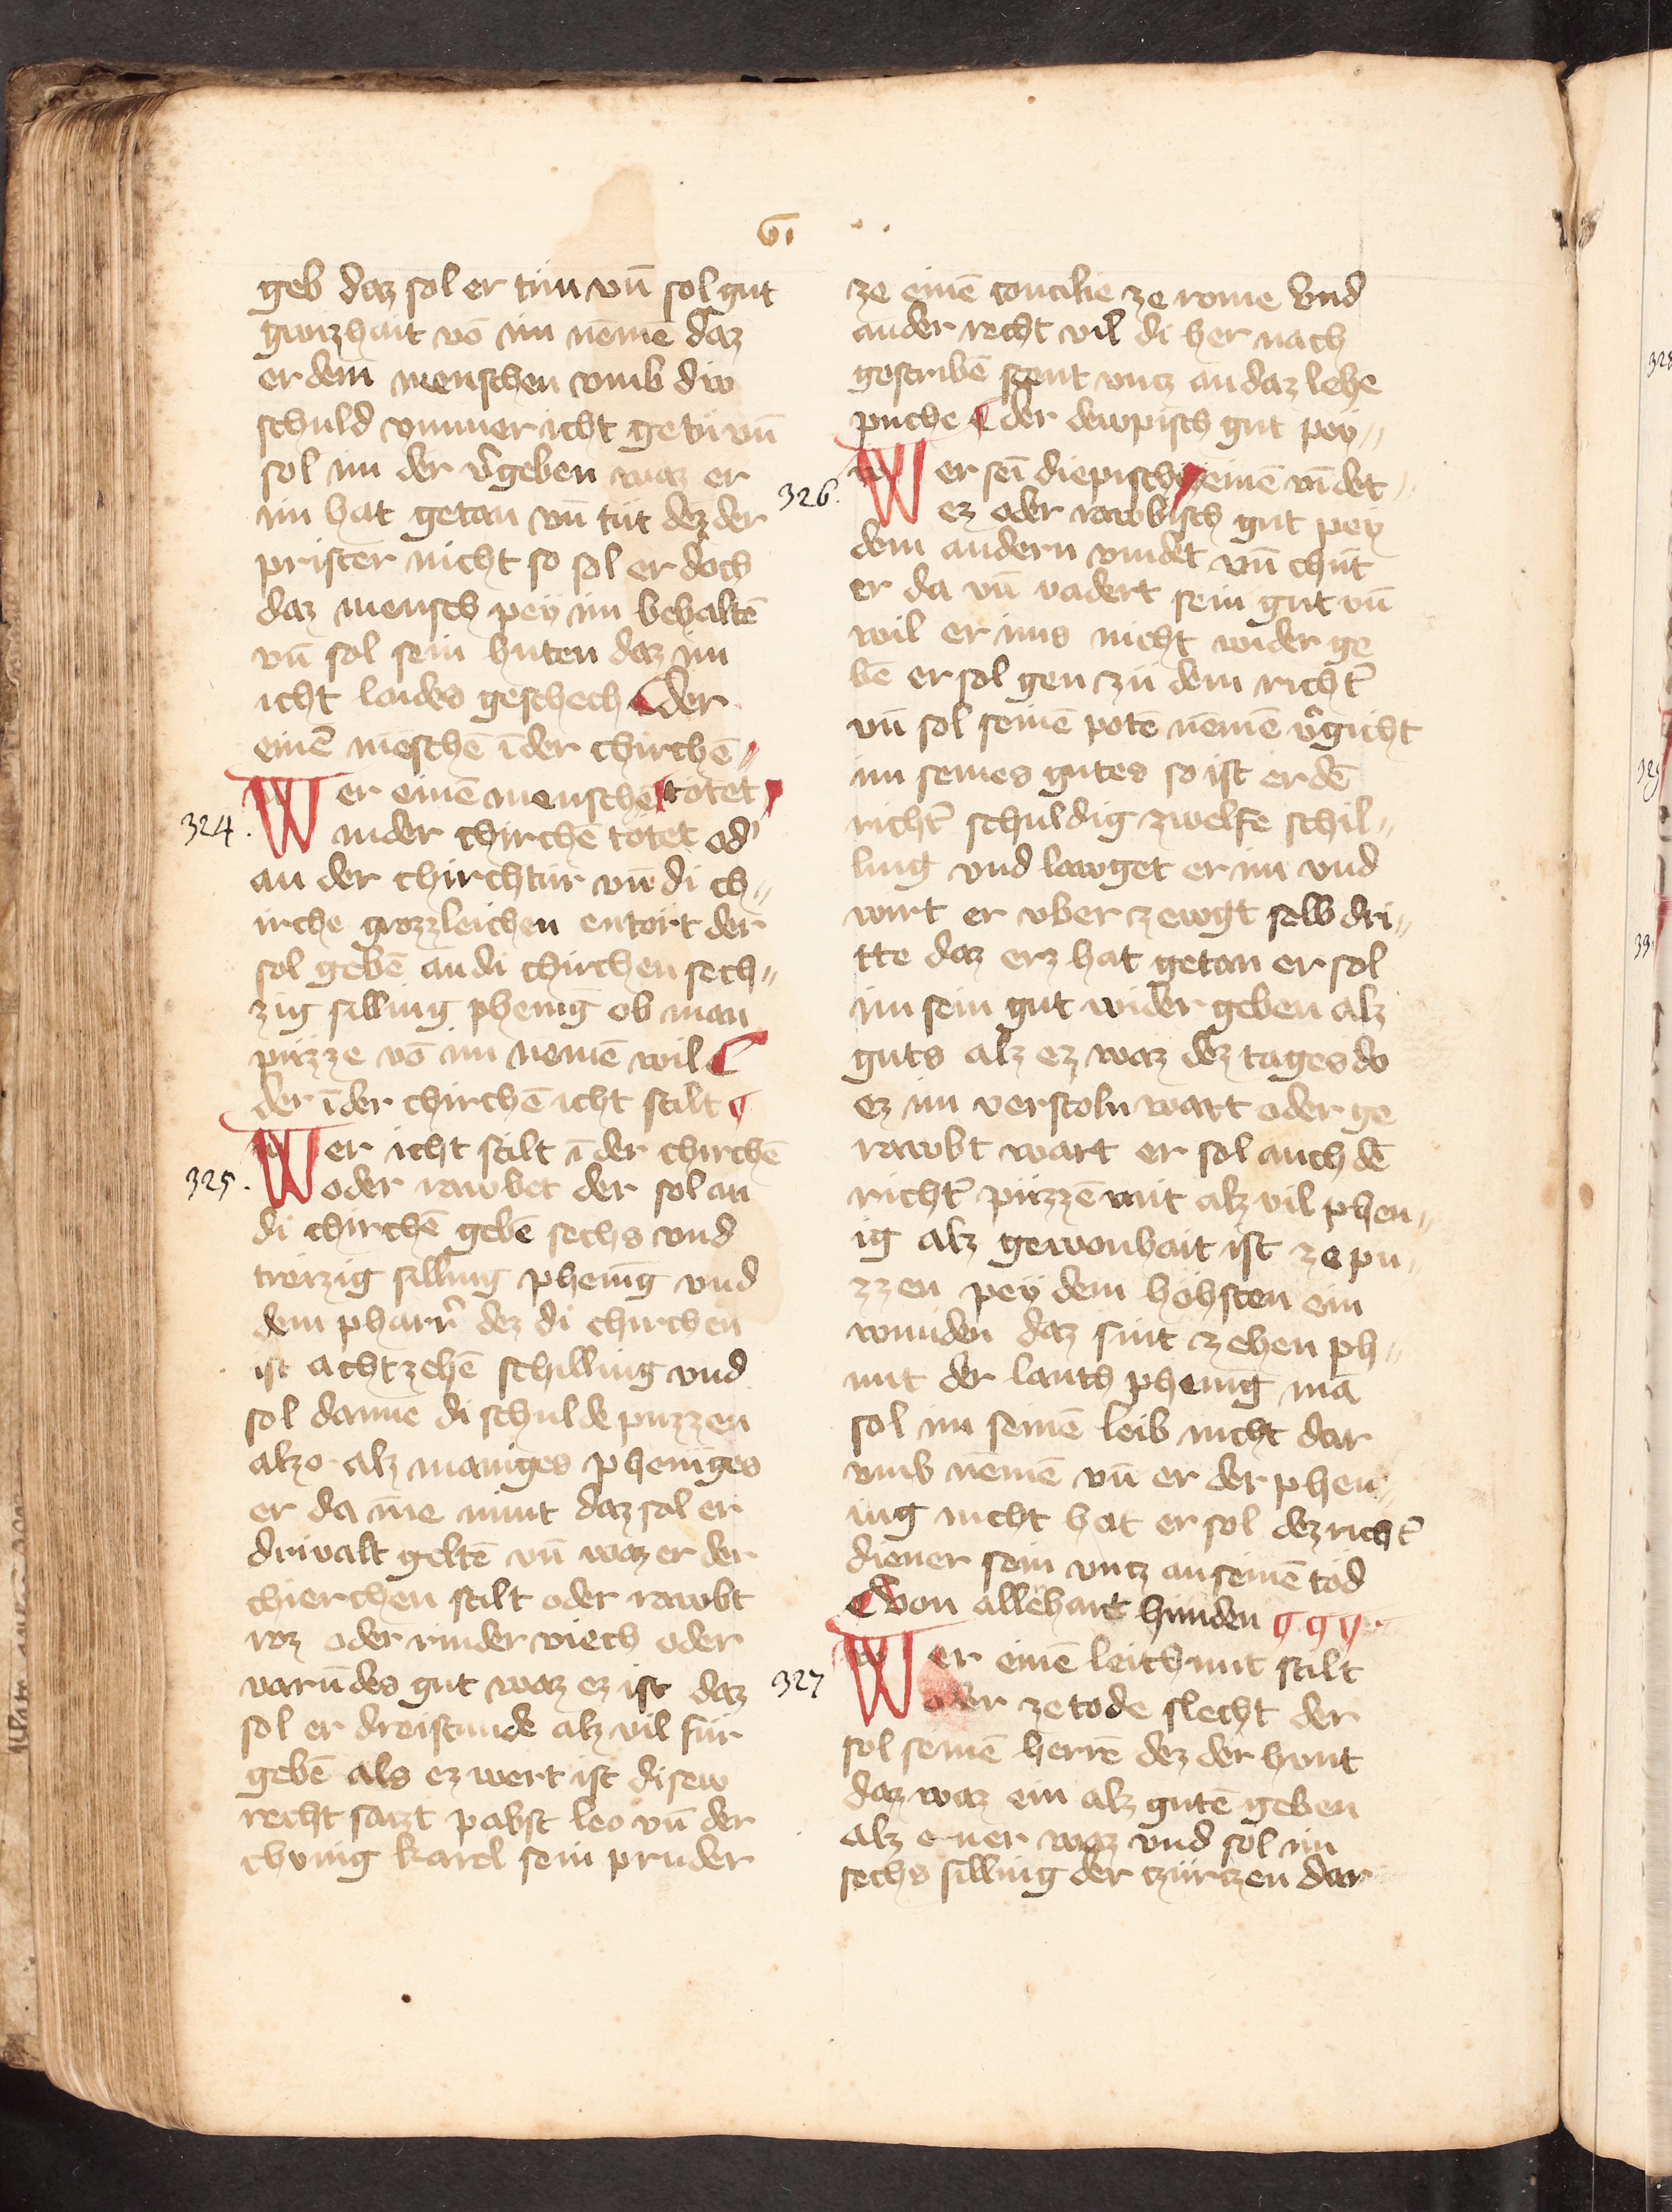 vi
geb daz sol er tún vn̄ sol gut
gwizhait vō im nemē daz
er dem menschen vmb div
schuld vmmer icht getú vn̄
sol im der v̉geben waz er
im hat getan vn̄ tút dez der
prister nicht so sol er doch
daz mensch peẏ im behaltē
vn̄ sol sein húten daz im
icht laides geschech der
einē mēschē ī der chirchē
324.
Wer einē menschē totet
in der chirchē totet od'
an der chirchtúr vn̄ di ch
irche grozzleichen entort der
sol gebē an di chirchen sech
zig silling phenig ob man
púzze vō im nemē wil
der ī der chirchē icht stilt
325.
Wer icht stilt ī der chirchē
oder rawbet der sol an
di chirchē gebē sechs vnd
treizig silling phenig vnd
dem pharr̉ dez di chirchen
ist achtzehē schilling vnd
sol danne di schulde puzzen
alzo alz maniges pheniges
er da īne nimt daz sol er
drivalt geltē vn̄ waz er der
chierchen stilt oder rawbt
roz oder rinder viech oder
varūdes gut waz ez ist daz
sol er dreistunde alz vil fúr
gebē als ez wert ist disew
recht satzt pabst leo vn̄ der
chvnig karel sein pruder
ze einē concilie ze rome vnd
ander recht vil di her nach
gescribē stent vntz an daz lehe
púche der dewpisch gut peẏ
326.
Wer sei diepisch einē vīdet
ez oder rawbisch gut peẏ
dem andern vindet vn̄ chút
er da vn̄ vadert sein gut vn̄
wil er ims nicht wider ge
bē er sol gen zú dem richt̉
vn̄ sol seinē potē nemē v̉gicht
im seines gutes so ist er dē
richt̉ schuldig zwelfe schil
ling vnd lawget er im vnd
wirt er vber zewgt selb dri
tte daz erz hat getan er sol
im sein gut wider geben alz
guts alz ez waz dez tages do
ez im verstoln wart oder ge
rawbt wart er sol auch dē
richt̉ púzzē mit alz vil phen
ig alz gewonhait ist ze pu
zzen peẏ dem hóhsten ein
wunden daz sint zehen ph
nnt der lants phenig mā
sol im seinē leib nicht dar
vmb nemē vn̄ er der phen
ing nicht hat er sol dez richt̉
diener sein vntz an seinē tód
Von allēhant hunden
327
Wer einē leithunt stilt
oder ze tode slecht der
sol seinē herrē dez der hunt
daz waz ein alz gutē geben
alz ener waz vnd sol im
sechs silling der czúrtzen dar